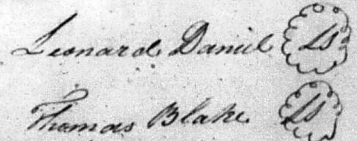 Leonard Daniel LS
Thomas Blake LS